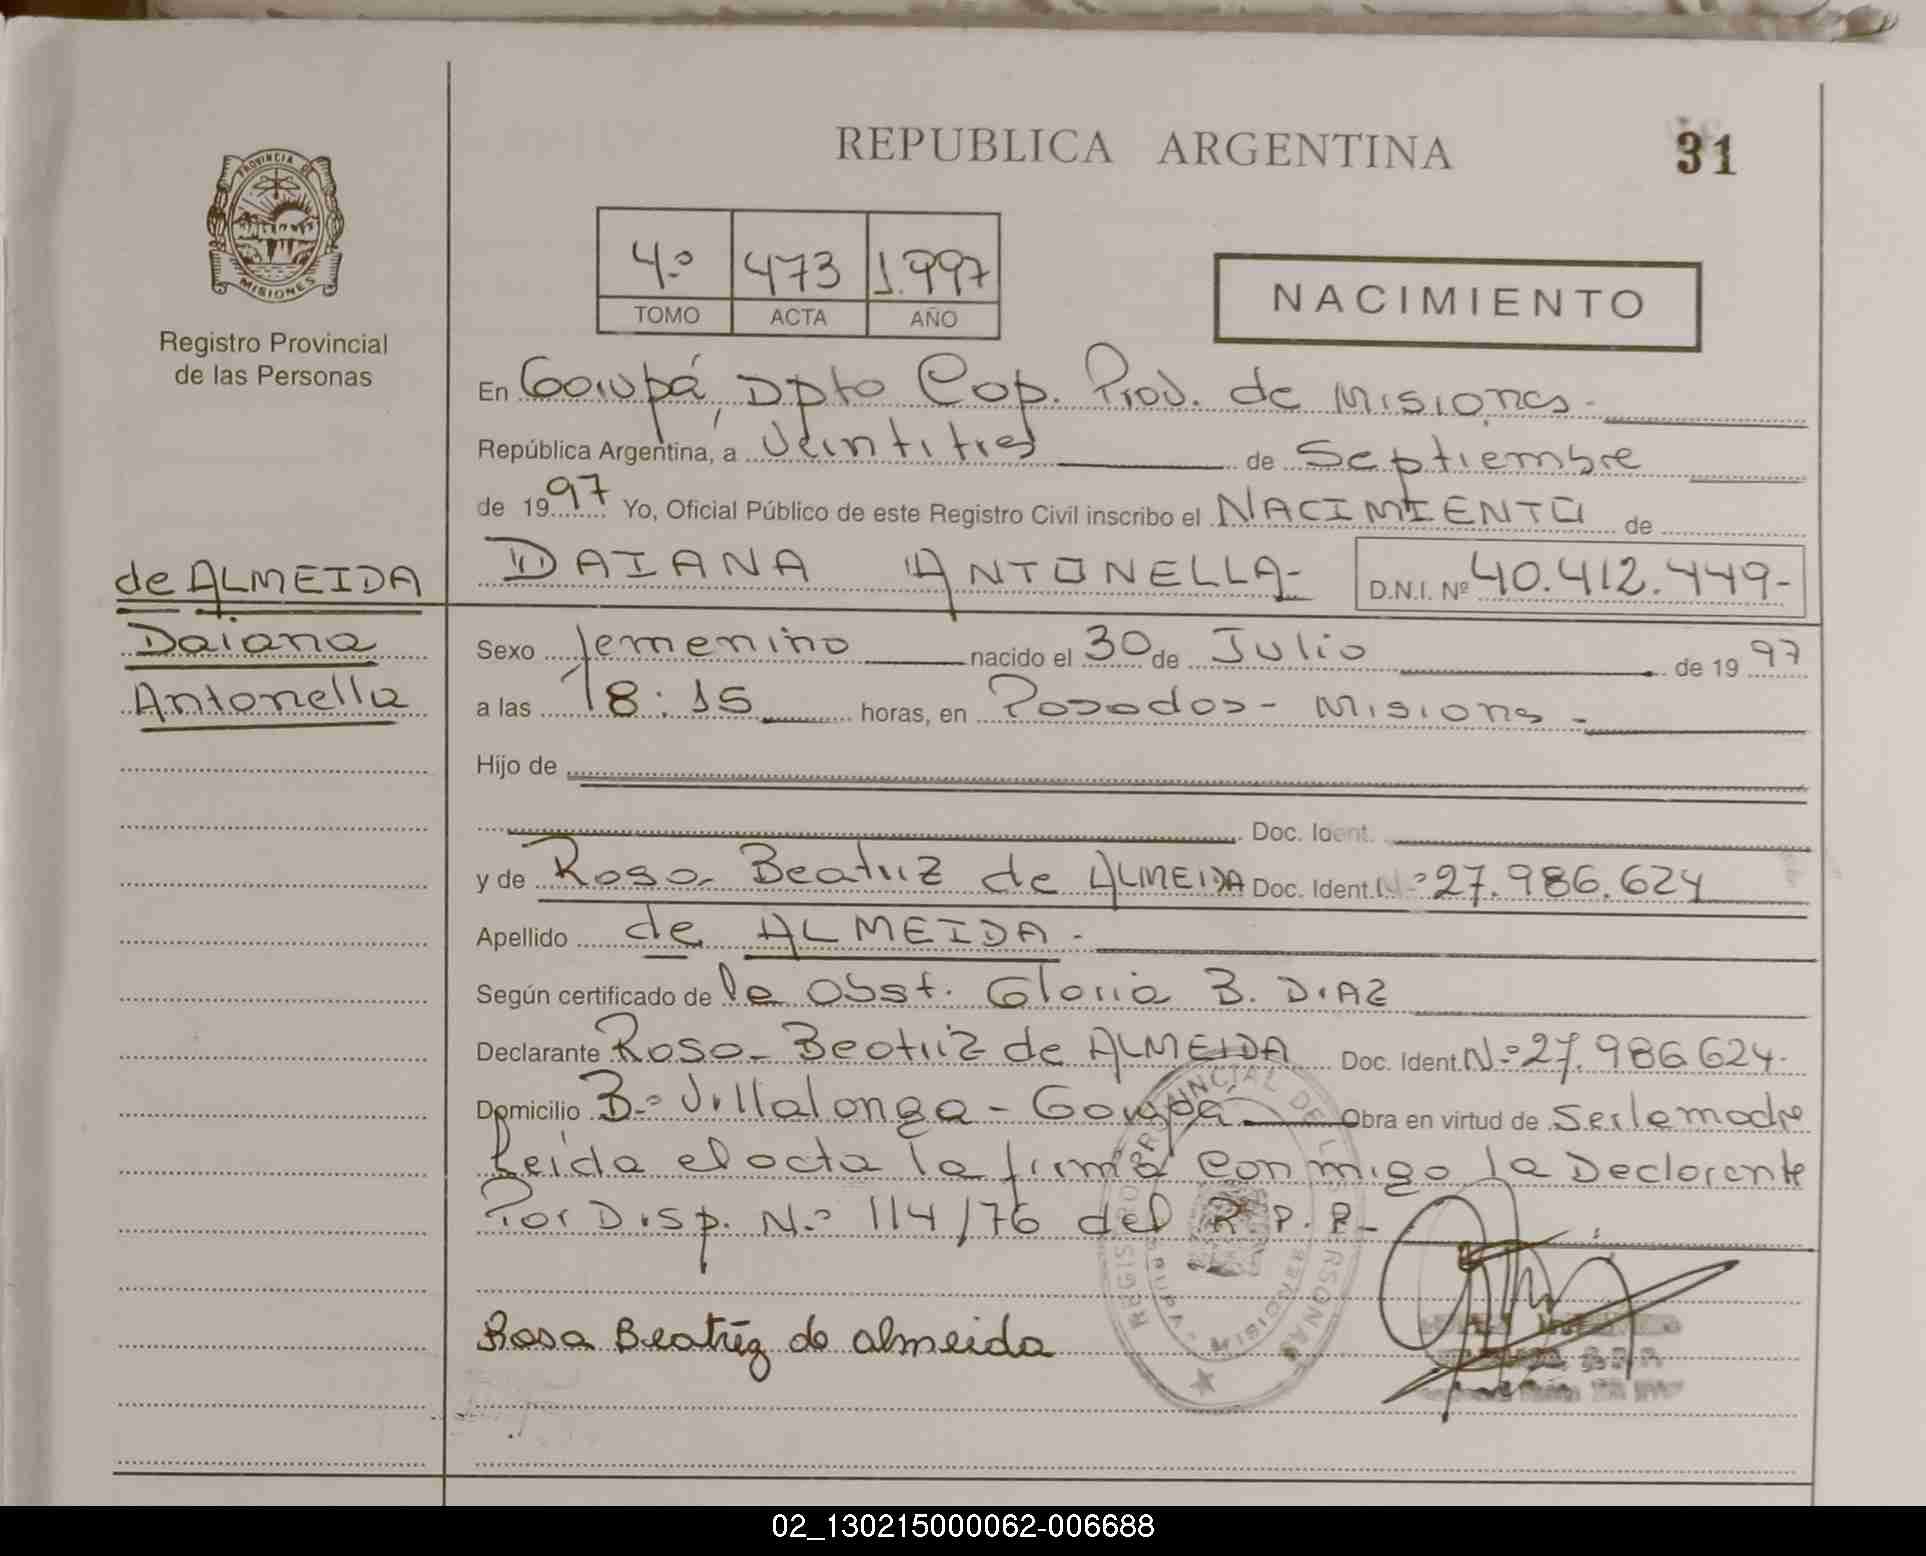 REPUBLICA ARGENTINA
31
PROVINCIA DE
MISIONES
Registro Provincial
de las Personas
4º 473 1.997
TOMO ACTA AÑO
NACIMIENTO
En Garupá, Dpto Cap. Prov. de Misiones.
República Argentina, a Veintitres de Septiembre
de 1997 Yo, Oficial Público de este Registro Civil inscribo el NACIMIENTO de
DAIANA ANTONELLA- D.N.I. Nº 40.412.449-
de ALMEIDA
Daiana
Antonella
Sexo femenino nacido el 30 de Julio de 1997
a las 18:15 horas, en Posadas- Misiones-
Hijo de
Doc. Ident.
y de Rosa Beatriz de ALMEIDA Doc. Ident. Nº 27.986.624
Apellido de ALMEIDA-
Según certificado de la Obst. Gloria B. DIAZ
Declarante Rosa Beatriz de ALMEIDA Doc. Ident. Nº 27.986.624-
Domicilio Bº Villalonga - Garupá Obra en virtud de Ser la madre
Leida el acta la firma conmigo la Declarante
Por Disp. Nº 114/76 del R.P.P-
Rosa Beatriz de almeida
REGISTRO PROVINCIAL DE LAS PERSONAS
MISIONES
02_130215000062-006688